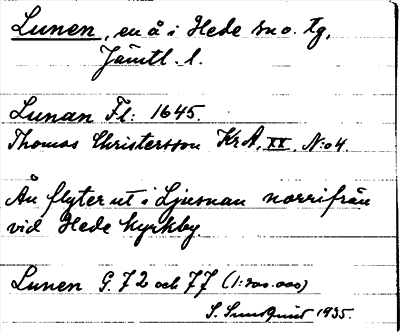 Lunen, en å i Hede sn o. tg,
Jämtl. l.
Lunan Fl: 1645.
Thomas Christersson KrA, XX, N:o 4.
Ån flyter ut i Ljusnan norrifrån
vid Hede kyrkby.
Lunen G. 72 och 77 (1:200.000)
S. Sundquist 1935.